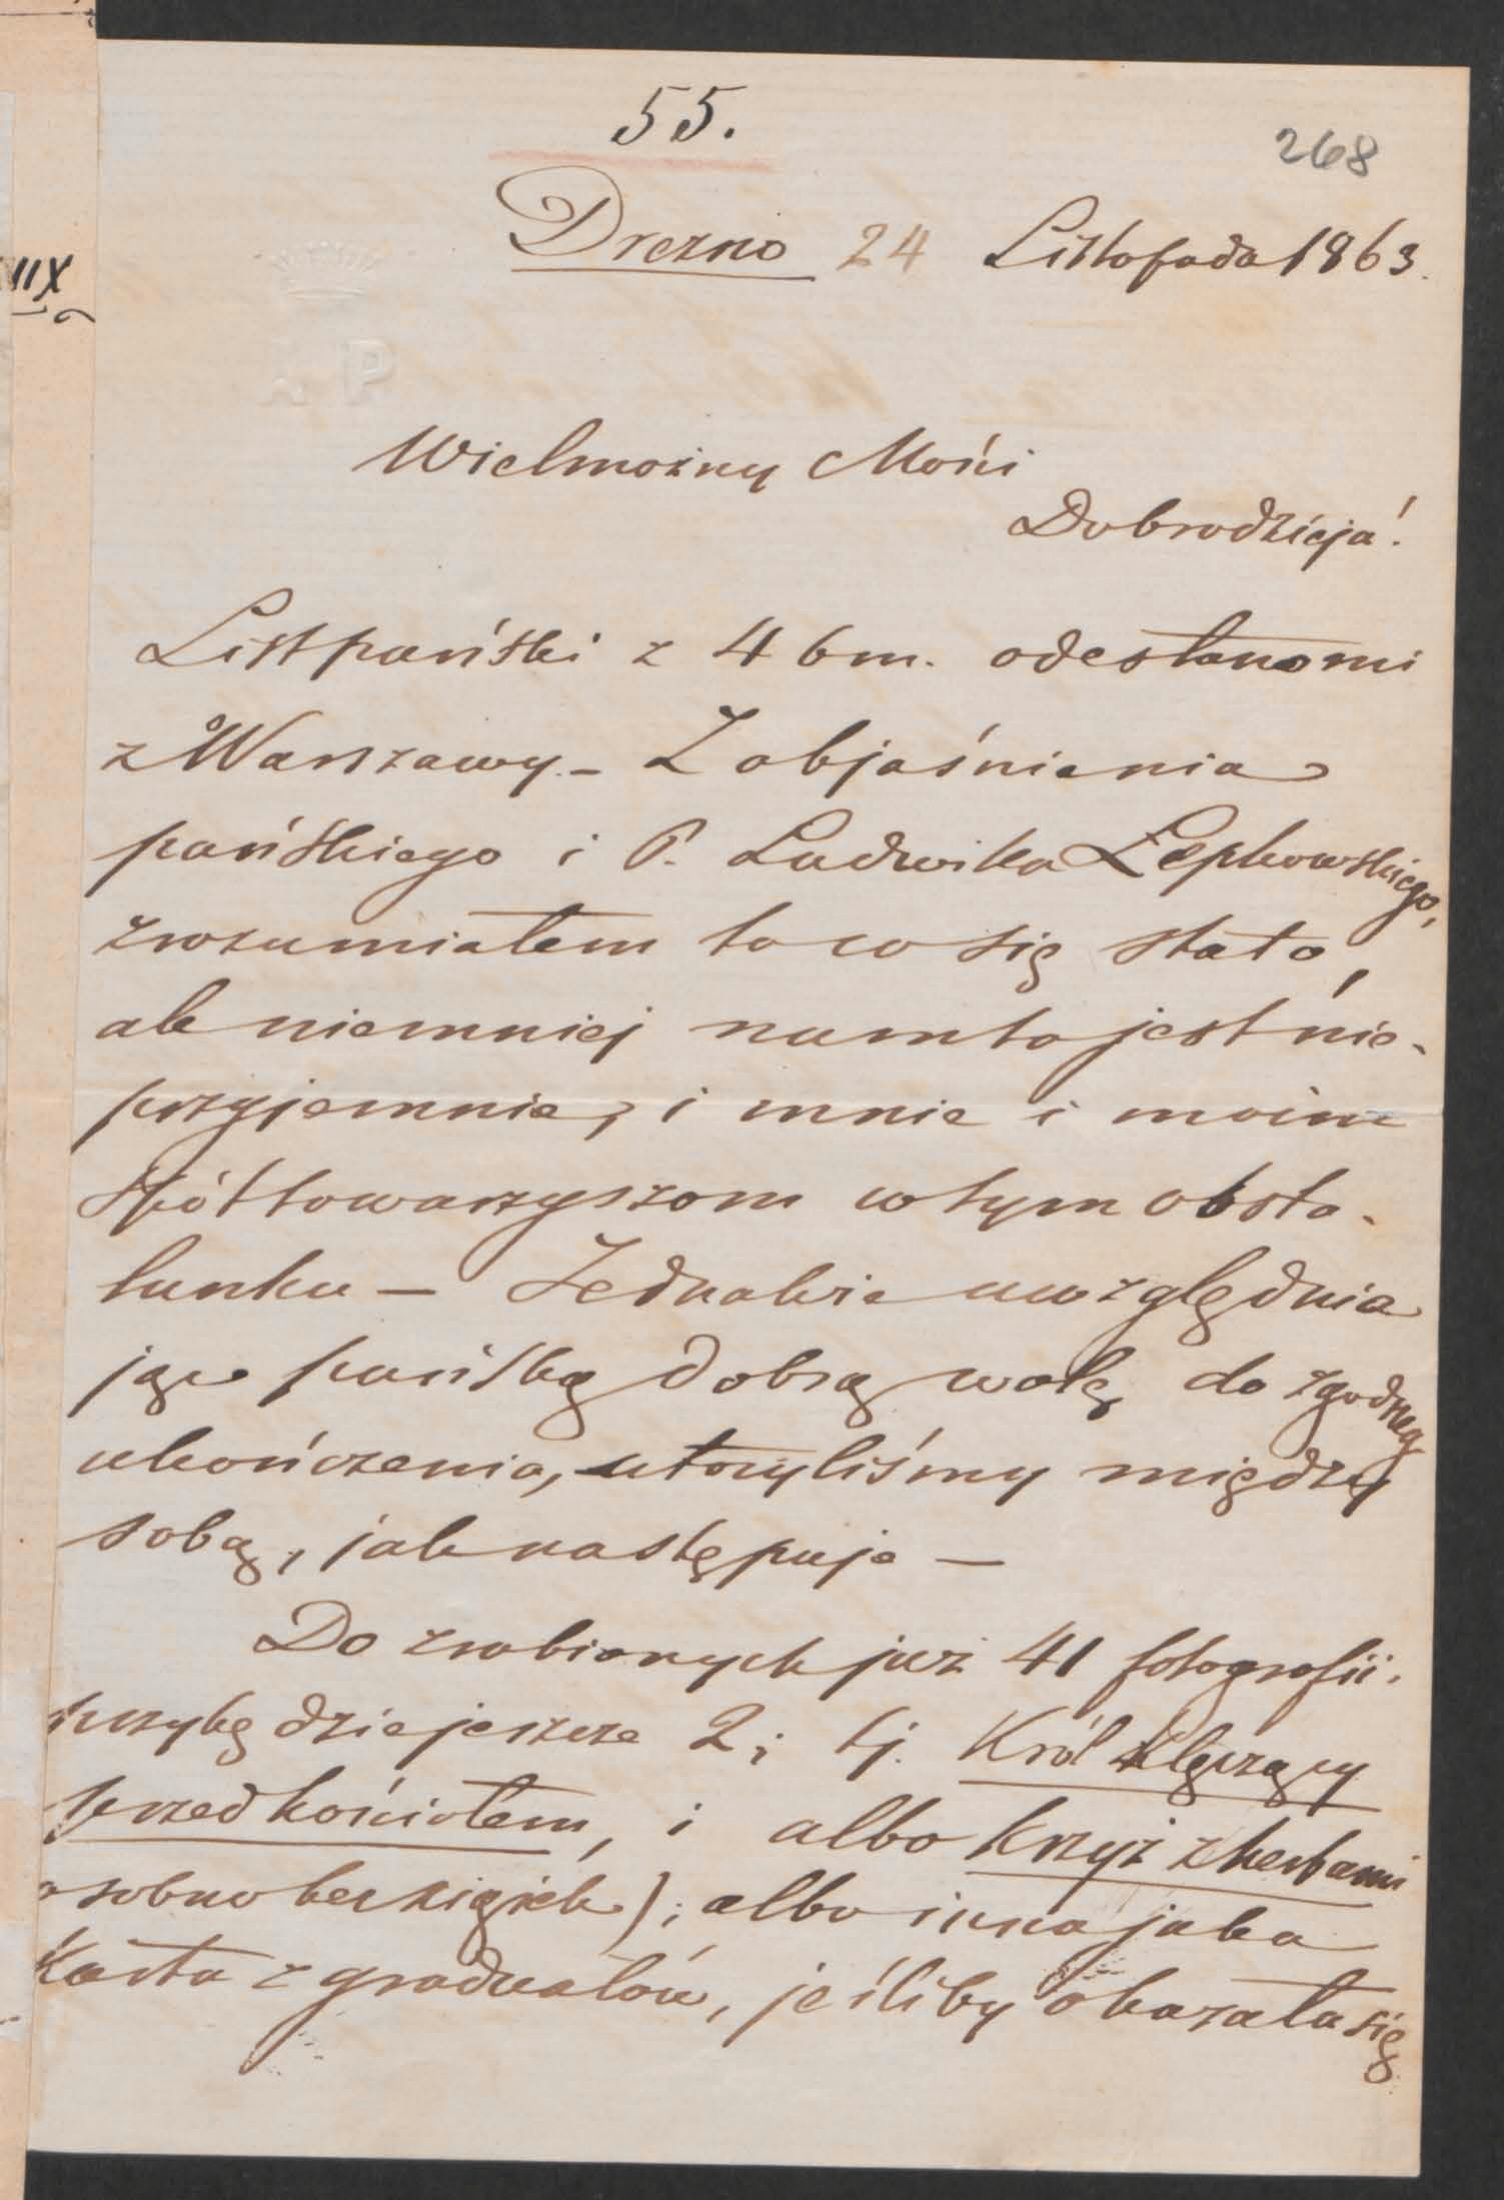 55.
268
Drezno 24 Listopada 1863.
IIX
A P
Wielmożny Mości
Dobrodzieja!
List pański z 4 bm. odesłano mi
z Warszawy. – Z objaśnienia
pańskiego i P. Ludwika Łepkowskiego,
zrozumiałem to co się stało,
ale niemniej nam to jest nie-
przyjemnie, i mnie i moim
spółtowarzyszom w tym obsta-
lunku – Jednakże uwzględnia
jąc pańską dobrą wolę do zgodneg
ukończenia, ułożyliśmy między
sobą, jak następuje –
Do zrobionych już 41 fotografii.
przybędzie jeszcze 2; tj. Król klęczący
przed kościołem, i albo krzyż z herbami
osobno bez księżek); albo inna jaka
Karta z graduałów, jeśliby okazała się